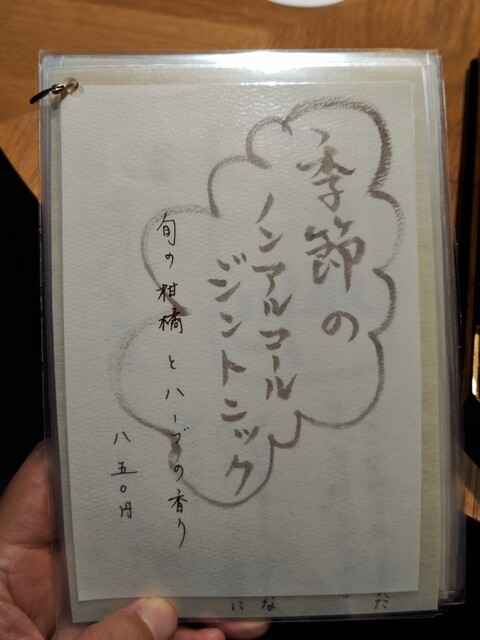 季節の
ノンアルコール
ジントニック
旬の柑橘とハーブの香り
八五〇円
だ
な
に